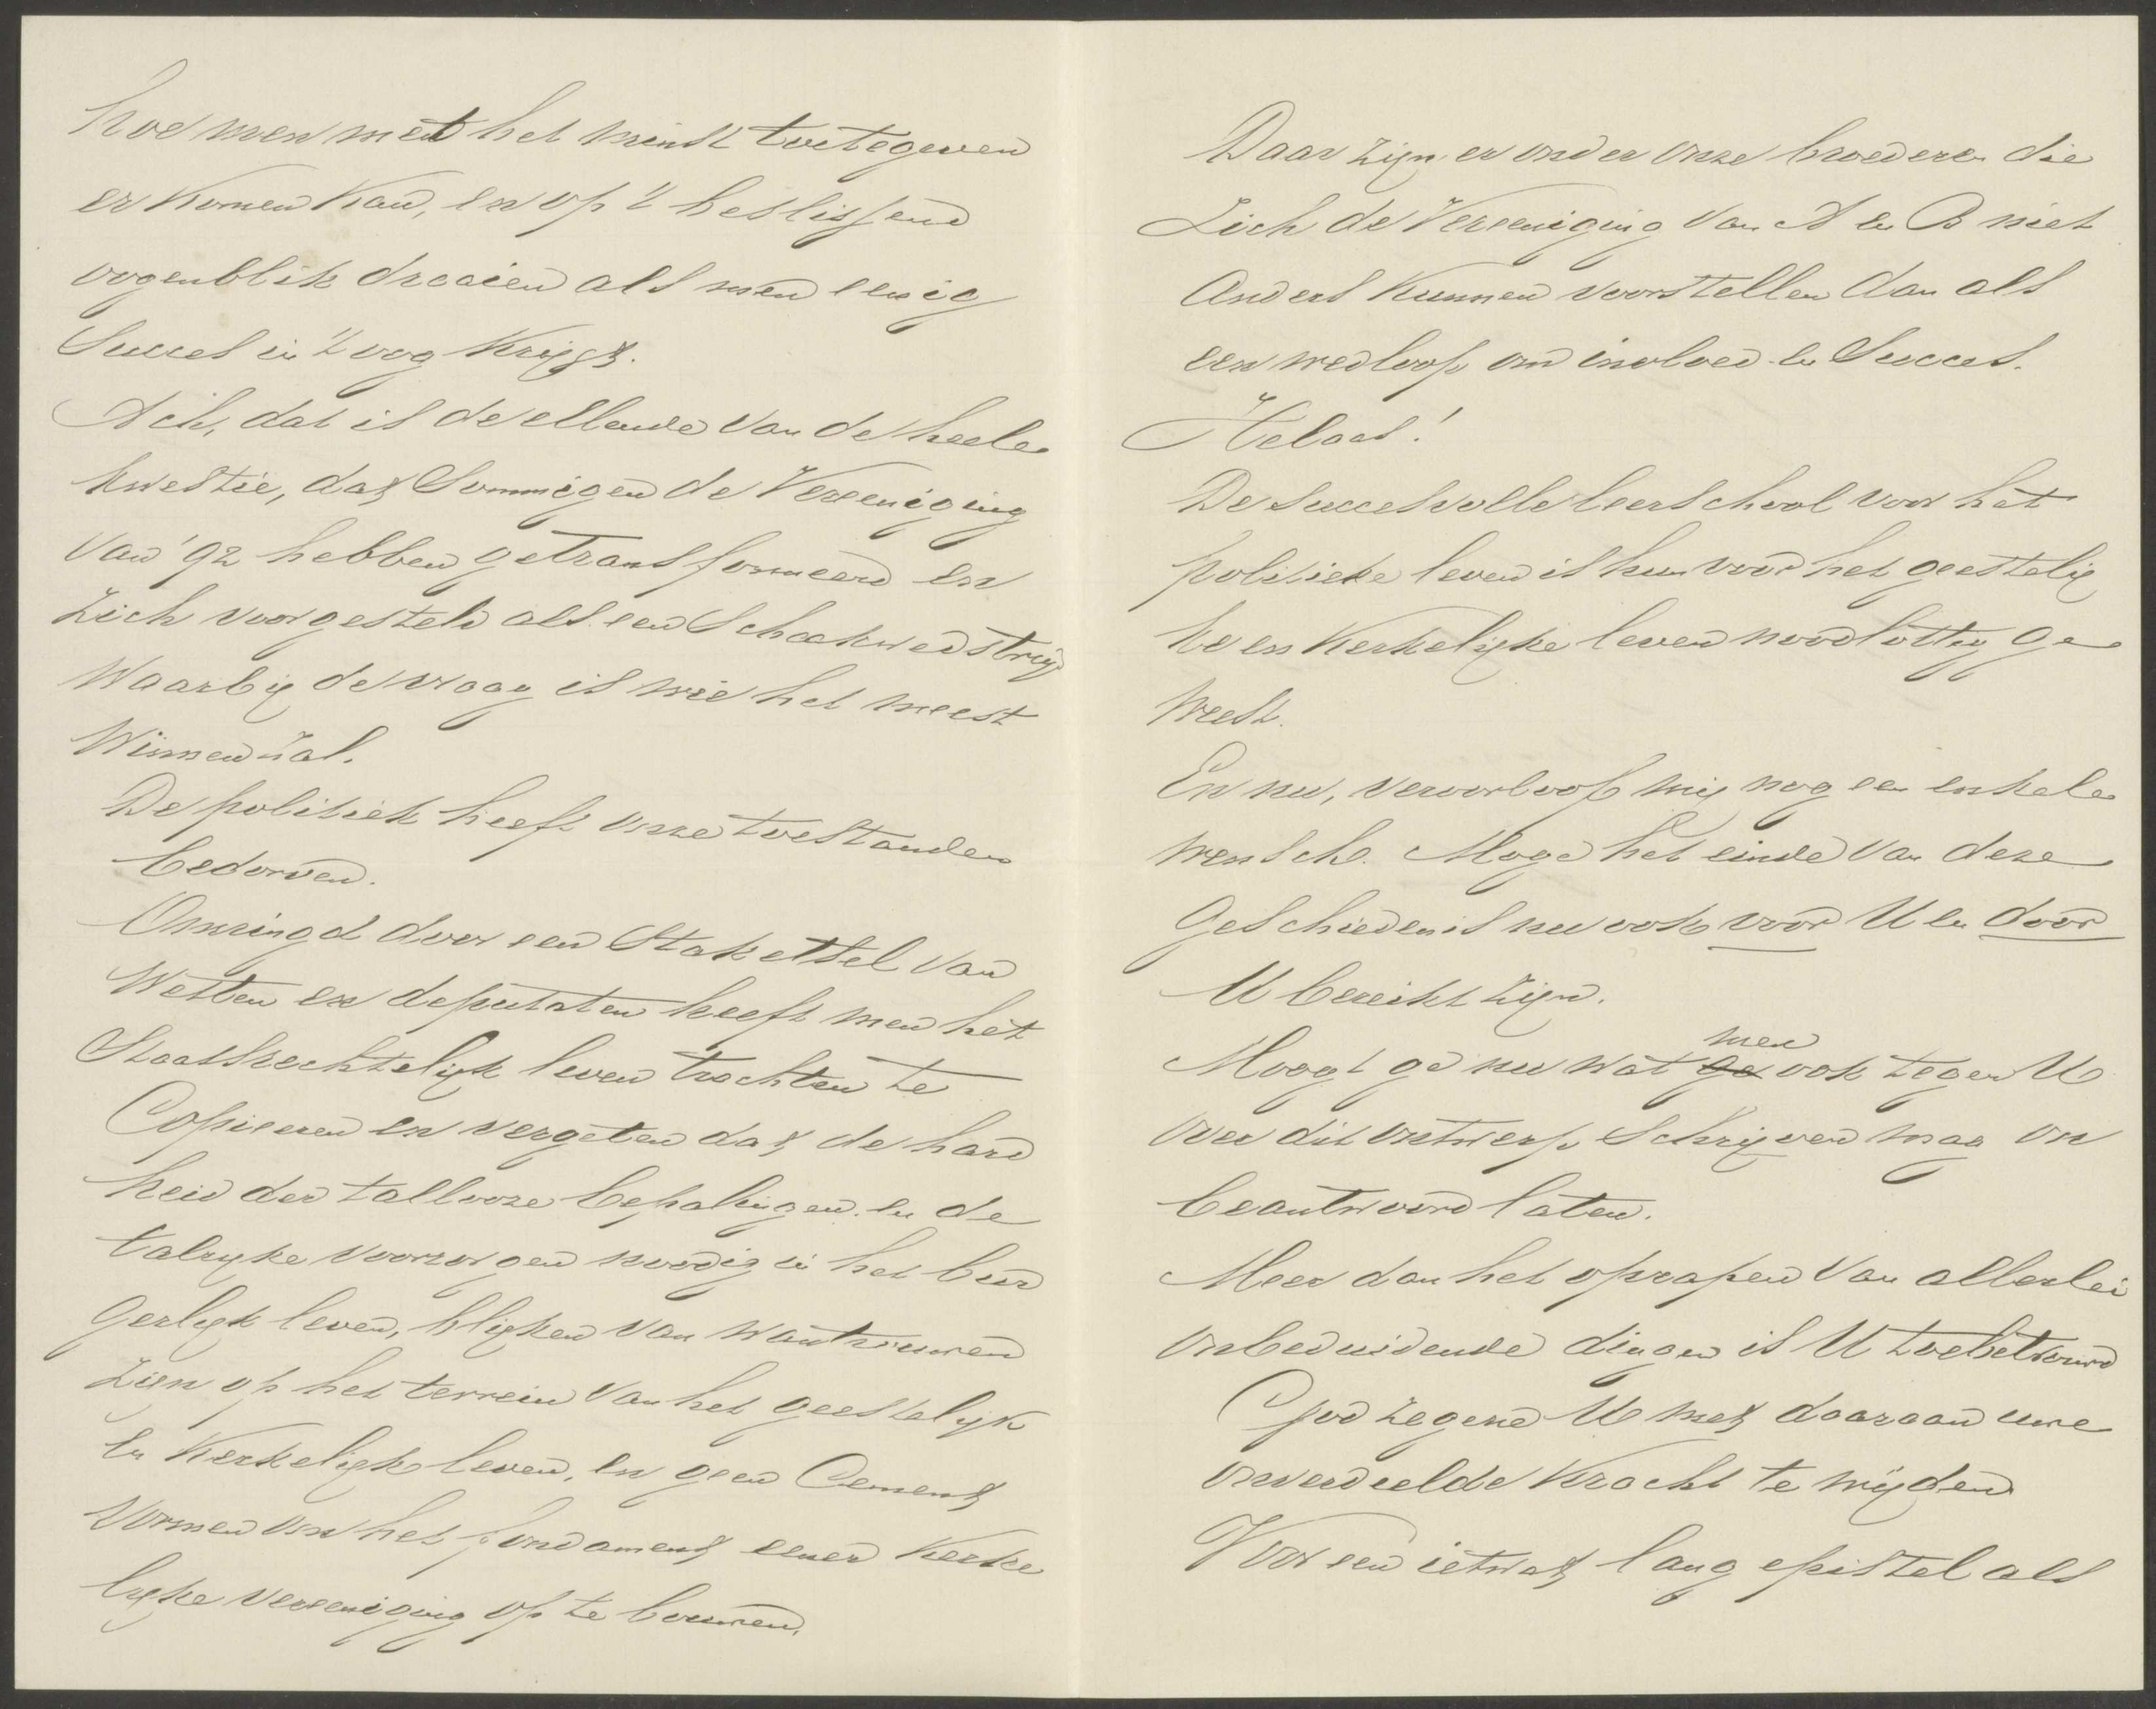 hoe men met het minst toetegeven
er komen kan, en op 't beslissend
oogenblik draaien als men eenig
Succes in 't oog krijgt.
Ach, dat is de ellende van de heele
kwestie, dat Sommigen de Vereeniging
van '92 hebben getransformeerd en
zich voorgesteld als een Schaakwedstrijd
waarbij de vraag is wie het meest
Winnen zal.
De politiek heeft onze toestanden
bedorven.
Omringd door een Staketsel van
Wetten en deputaten heeft men het
Staatsrechtelijk leven trachten te
Copieeren en vergeten dat de hard
heid der tallooze bepalingen en de
talrijke voorzorgen noodig in het bur
gerlijk leven, blijken van wantrouwen
zijn op het terrein van het geestelijk
en Kerkelijk leven, en geen Cement
vormen om het fondament eener Kerke
lijke vereeniging op te bouwen.
Daar zijn er onder onze broederen die
Zich de Vereeniging van A en B niet
anders kunnen voorstellen dan als
een wedloop om invloed en Succes.
Helaas!
De Succesvolle leerschool voor het
politieke leven is hun voor het geestelij
ke en Kerkelijke leven noodlottig ge
weest.
En nu, veroorloof mij nog een enkele
wensch. Moge het einde van deze
Geschiedenis nu ook voor U en door
U bereikt zijn.
men
Moogt ge nu wat ge ook tegen U
over dit ontwerp Schrijven mag on
beantwoord laten.
Meer dan het oprapen van allerlei
onbeduidende dingen is U toebetrouwd
God zegene U met daaraan uwe
onverdeelde kracht te wijden
Voor een ietwat lang epistel als